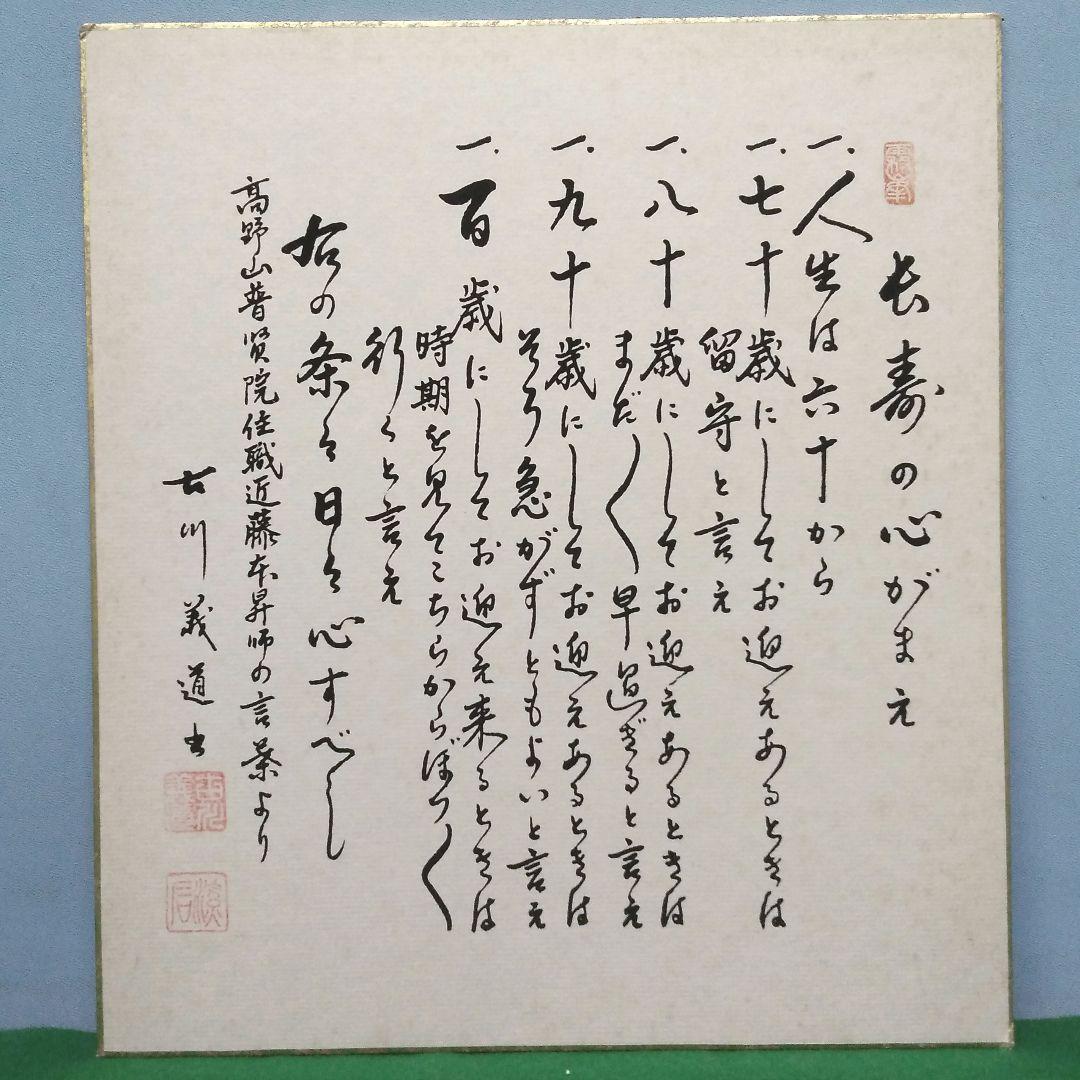 長寿の心がまえ
一、人生は六十から
一、七十歳にしてお迎えあるときは
留守と言え
一、八十歳にしてお迎えあるときは
まだ〱早過ぎると言え
一、九十歳にしてお迎えあるときは
そう急がずともよいと言え
一、百歳にしてお迎え来るときは
時期を見てこちらからぼつ〱
行くと言え
右の条々日々心すべし
高野山普賢院住職近藤本昇師の言葉より
古川義道書